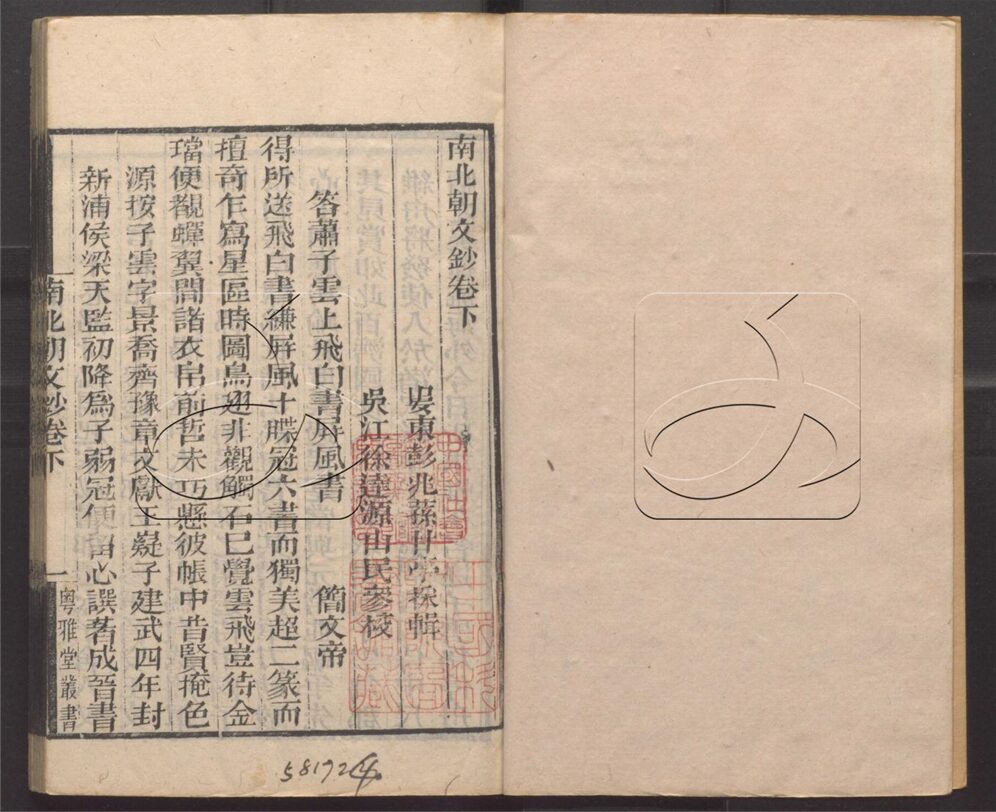 南北朝文鈔卷下
婁東彭兆蓀甘亭採輯
吳江徐達源山民參校
答蕭子雲上飛白書屏風書
簡文帝
得所送飛白書縑屏風十牒冠六書而獨美超二篆而
擅奇乍寫星區時圖鳥翅非觀觸石已覺雲飛豈待金
璫便覩蟬翼間諸衣帛前哲未巧懸彼帳中昔賢掩色
源按子雲字景喬齊豫章文獻王嶷子建武四年封
新浦侯梁天監初降爲子弱冠便留心譔著成晉書
南北朝文鈔卷下
一
粵雅堂叢書